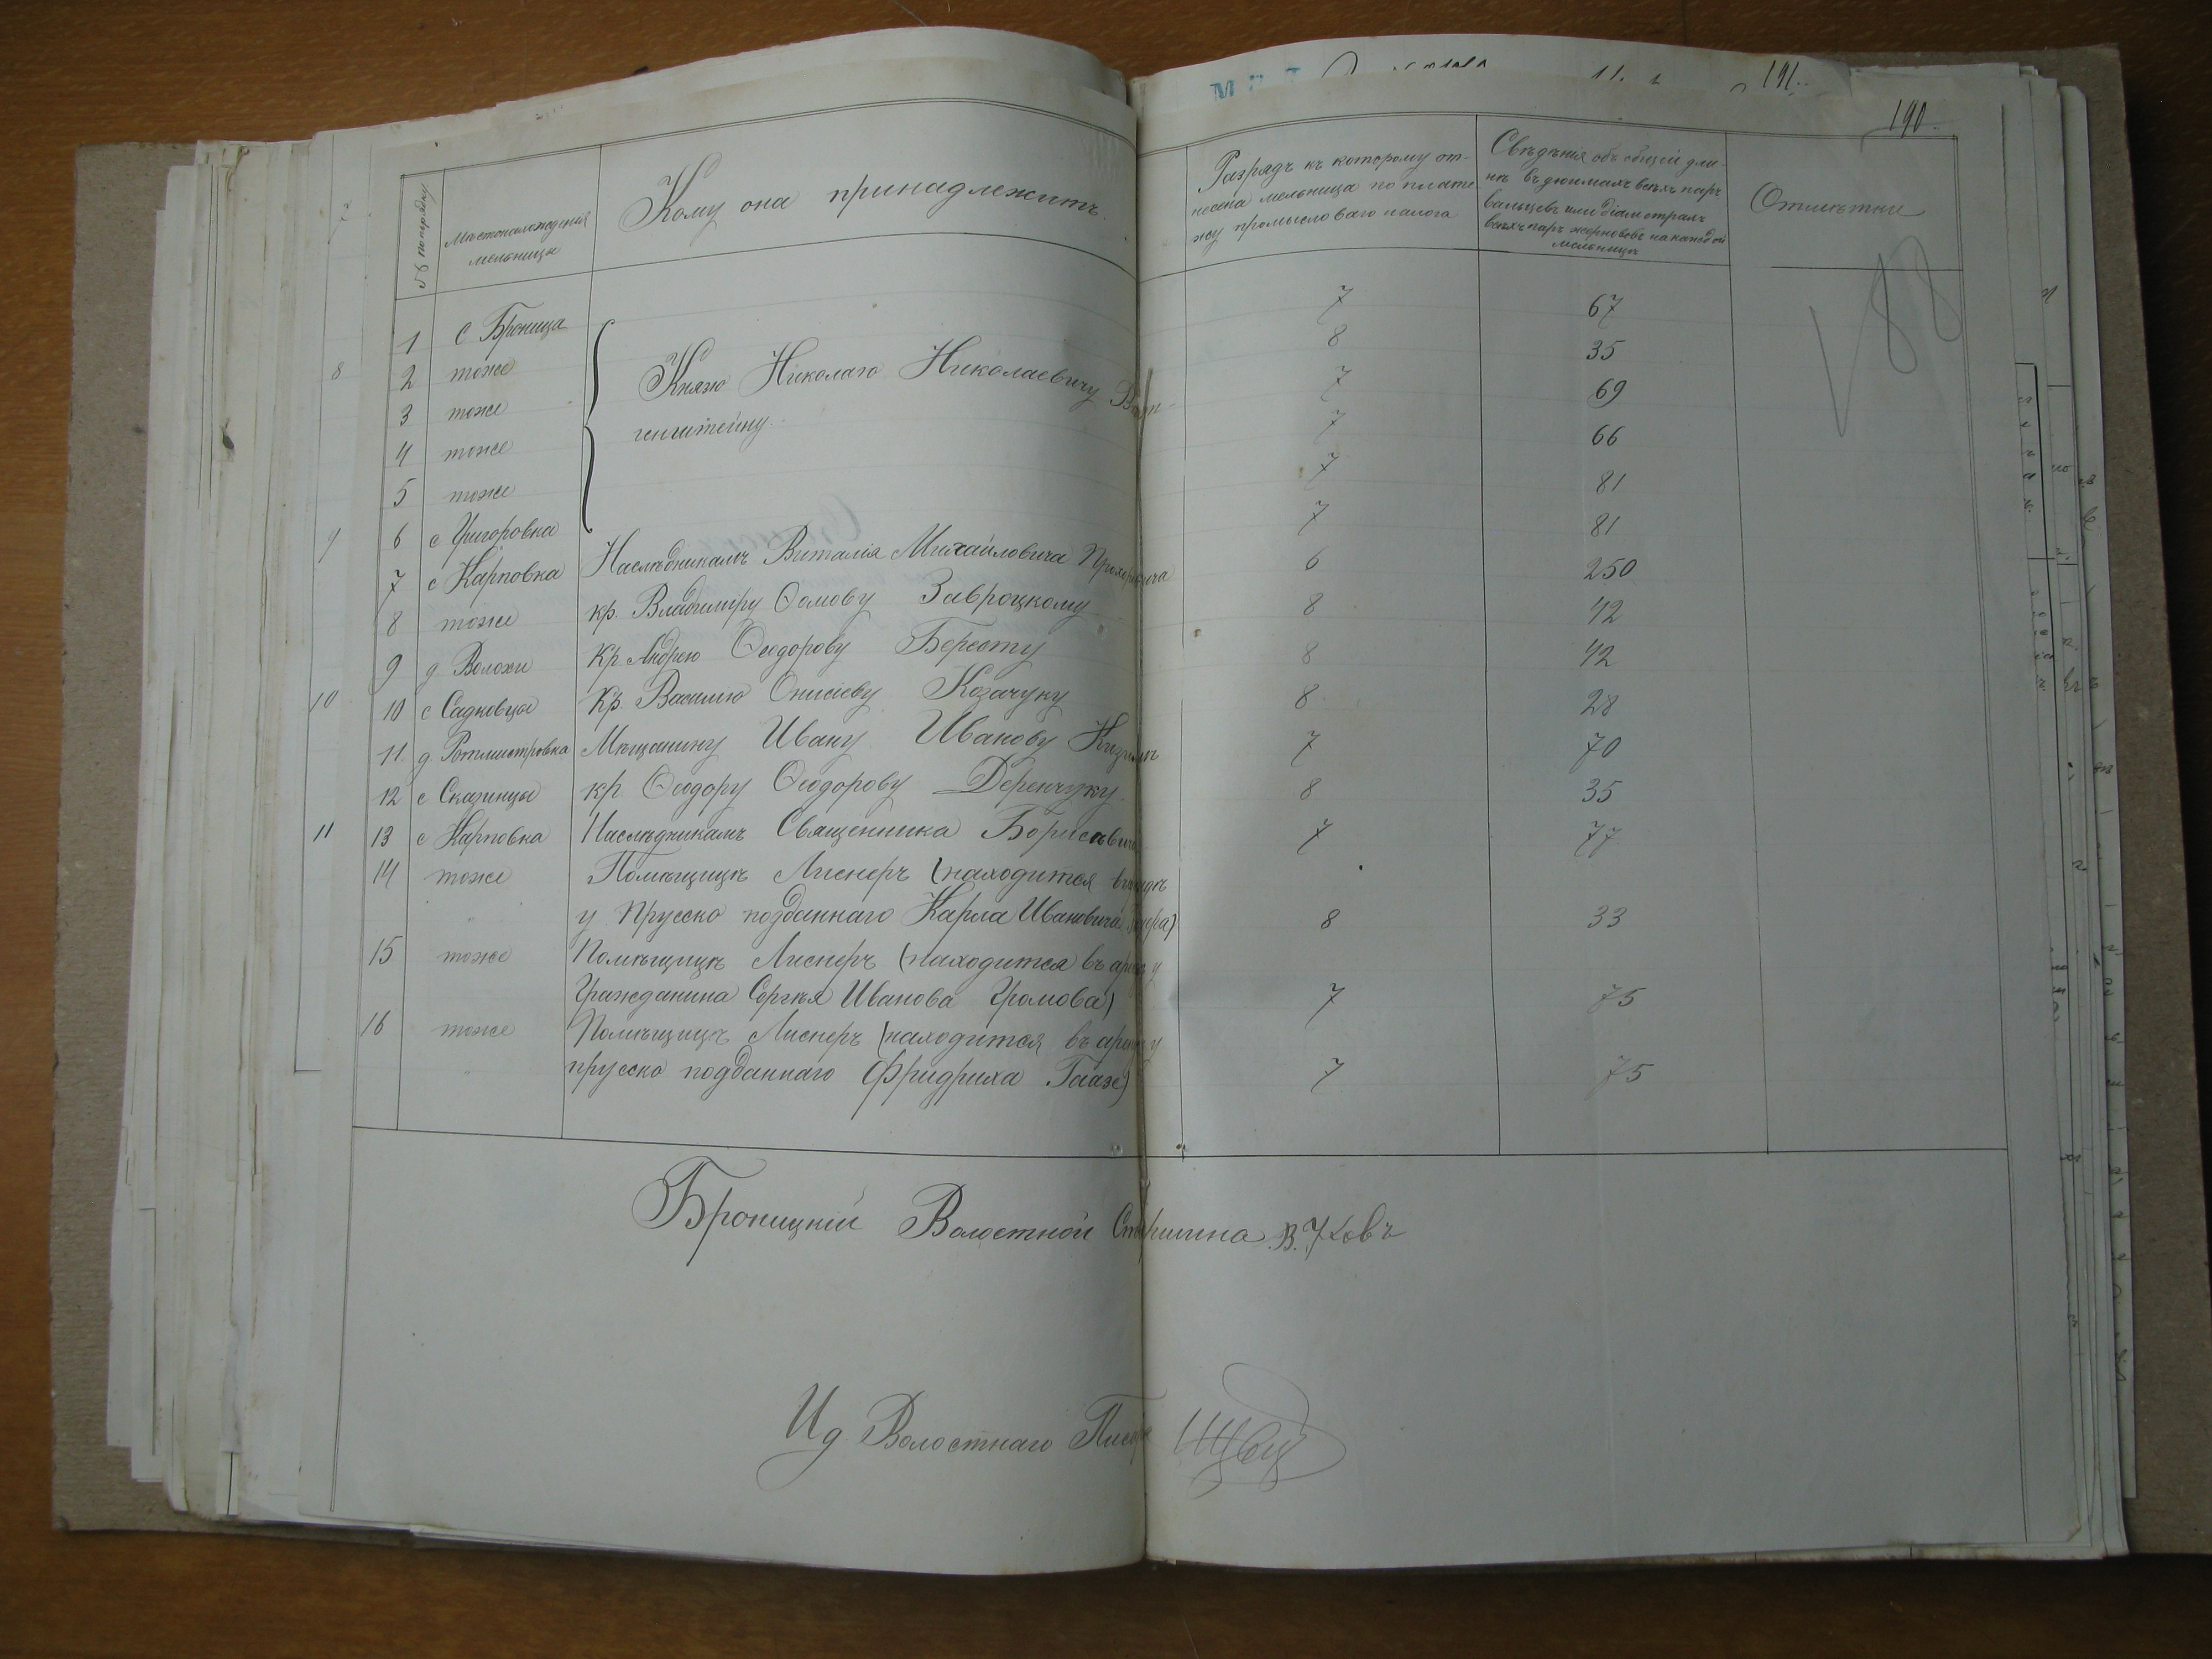 190.
191.
№ по порядку
Мѣстонахожденія
мельницы
Кому она принадлежитъ.
Разрядъ къ которому от-
несена мельница по плате
жу промысловаго налога
Свѣдѣнія объ общей дли-
нѣ въ дюймахъ всѣхъ паръ
вальцевъ или діаметрахъ
всѣхъ паръ жернововъ на каждой
мельницѣ
Отмѣтки
1 с Броница 7 67
2 тоже 8 35
Князю Николаю Николаевичу Вит-
3 тоже 7 69
генштейну.
4 тоже 7 66
5 тоже 7 81
6 с Григоровка 7 81
7 с Карповка Наслѣдникамъ Виталія Михайловича 6 250
8 тоже кр. Владиміру Ѳомову Завроцкому 8 42
9 д Волохи Кр Андрею Ѳеодорову Бересту 8 42
10 с Садковцы Кр. Василию Онисіеву Козачуку 8 28
11. д. Ротмистровка Мѣщанину Ивану Иванову 7 70
12 с Сказинцы кр Ѳеодору Ѳеодорову Деренчуку. 8 35
13 с Карповка Наслѣдникамъ Священника Борисевича 7 77
14 тоже Помѣщицѣ Лиснеръ (находится в арендѣ
у Прусско подданнаго Карла Ивановича 8 33
15 тоже Помѣщицѣ Лиснеръ (находится въ аренду
Гражданина Сергѣя Иванова Громова) 7 75
16 тоже Помѣщицѣ Лиснеръ (находится въ аренду
прусско подданнаго Фридриха Гаазе) 7 75
188
Броницкій Волостной Старшина В.
Ид. Волостнаго Писаря
8
9
10
11